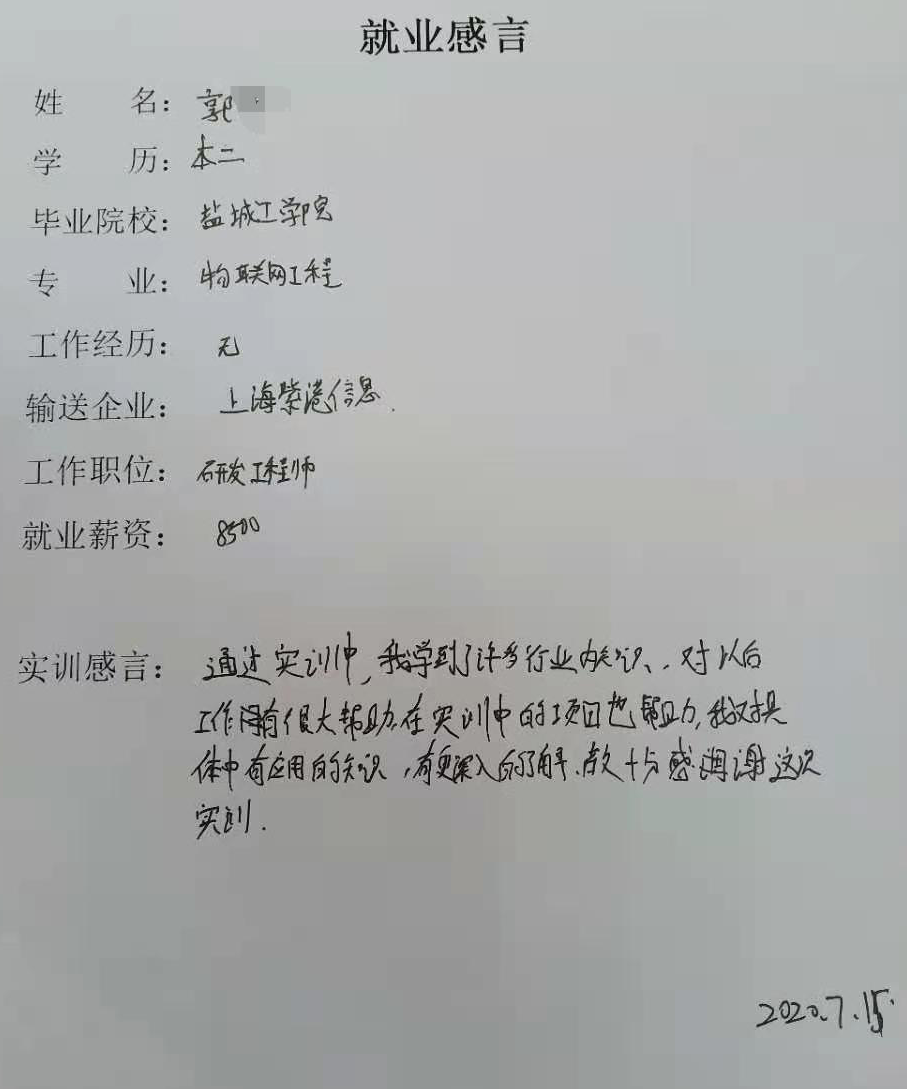 就业感言
姓 名：郭
学 历：本二
毕业院校：盐城工学院
专 业：物联网工程
工作经历：无
输送企业：上海紫港信息.
工作职位：研发工程师
就业薪资：8500
实训感言：通过实训中，我学到了许多行业内知识、，对以后
工作有很大帮助.在实训中的项目也帮助，我对具
体中有应用的知识，有更深入的了解.十分感谢这次
实训.
2020.7.15